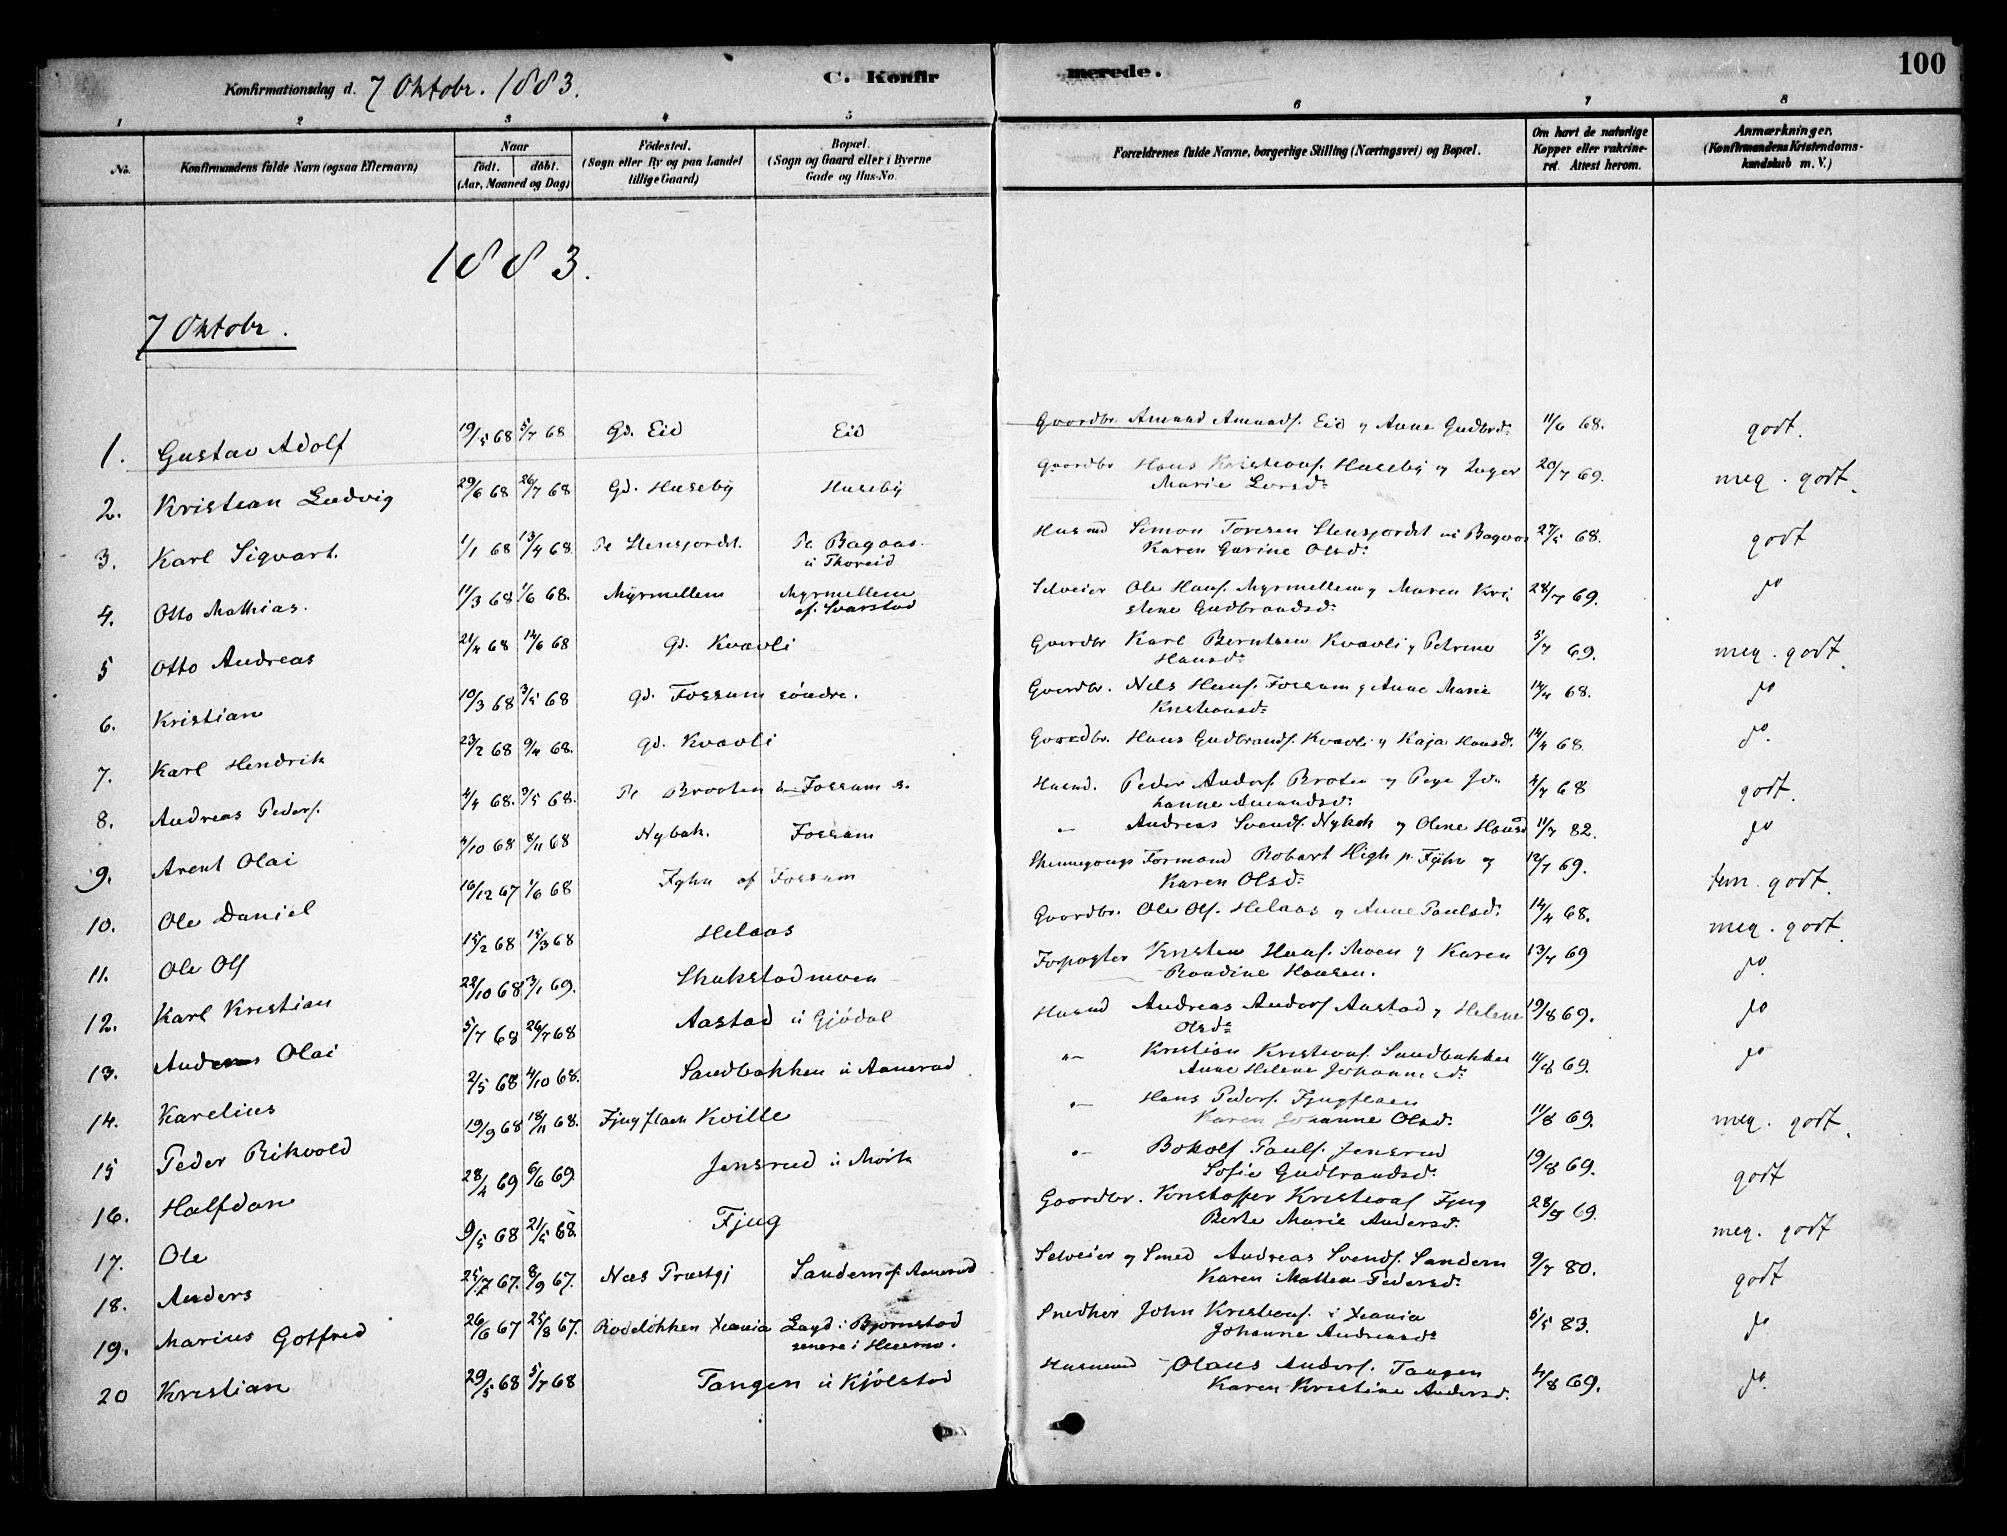 Konfirmationsdag d. 7 Oktobr. 1883.
C. Konfirmerede.
100
1 2 3 4 5 6 7 8
No.
Konfirmandens fulde Navn (ogsaa Efternavn)
Naar
födt. döbt.
(Aar, Maaned og Dag)
Födested.
(Sogn eller By og paa Landet
tillige Gaard)
Bopæl.
(Sogn og Gaard eller i Byerne
Gade og Hus-No.
Forældrenes fulde Navne, borgerlige Stilling (Næringsvei) og Bopæl.
Om havt de naturlige
Kopper eller vakcine-
ret. Attest herom.
Anmærkninger.
(Konfirmandens Kristendoms-
kundskab m. V.)
1883.
7 Oktobr.
1. Gustav Adolf 19/5 68 5/7 68 Gd. Eid Eid Gaardbr. Amund Amunds. Eid og Anne Gudbrd. 11/6 68. godt.
2. Kristian Ludvig 29/6 68 26/7 68 Gd. Huseby Huseby Gaardbr Hans Kristians. Huseby og Inger 20/7 69. meg. godt.
Marie Larsd.
3. Karl Sigvart. 1/1 68 13/4 68 Pl Stensjordet. Pl Bagaas. Husmd Simon Toresen Stensjordet 27/5 68. godt
u Thoreid
Karen Gurine Olsd.
4. Otto Mathias. 11/3 68 1/6 68. Myrmellem Myrmellem Selveier Ole Hans. Myrmellem og Maren Kri 28/7 69. do
af Svarstad
stine Gudbrandsd.
5 Otto Andreas 21/4 68 14/6 68 Gd. Kvavli Gaardbr Karl Berntsen Kvavli og Petrine 5/7 69. meg. godt.
Hansd.
6. Kristian 10/3 68 3/5 68 Gd. Fossum söndre. Gaardbr. Nils Hans. Fossum og Anne Marie 14/4 68. do
Kristiansd.
7. Karl Hendrik 23/2 68 9/4 68. Gd. Kvavli Gaardbr. Hans Gudbrands. Kvavli og Kaja Hansd. 14/4 68 do.
8. Andreas Peders. 4/4 68. 3/5 68. Pl Braaten u Fossum s. Husmd. Peder Anders. Broten og Jo 4/7 68 godt.
hanne Amundsd.
9. Arent Olai 4/10 68 8/11 68 Nybak. Fossum Andreas Svends. Nybak og Olene Hansd 11/7 82. do
10. Ole Daniel 16/12 67 1/6 68 af Fossum Formand Robert High 12/7 69. tem. godt.
Karen Olsd.
11. Ole Ols 15/2 68 15/3 68 Helaas Gaardbr. Ole Ols. Helaas og Anne Paulsd. 14/4 68. meg. godt.
12. Karl Kristian 22/10 68 3/1 69. Skakstadmoen Forpagter Kristen Hans. Moen og Karen 13/7 69 do.
Randine Hansen.
13. Anders Olai 5/7 68 26/7 68 Aastad u Gjödal Husmd Andreas Anders. Aastad og Helene 19/8 69. do
Olsd.
14. Karelius 2/5 68 4/10 68. Sandbakken u Aanerud "- Kristian Kristians. Sandbakken 11/8 69. do
Anne Helene Johannesd.
15 Peder Rikvold 19/9 68 18/11 68. Fjugflaen Kville "- Hans Peders. Fjugflaen 11/8 69. meg. godt.
Karen Johanne Olsd.
16. Halfdan 28/4 69 6/6 69. Jensrud u Mörk "- Bokolf Pauls. Jensrud 19/8 69. godt
Sofie Gudbrandsd.
17. Ole 9/5 68 21/5 68. Fjug Gaardbr. Kristoffer Kristians Fjug 28/9 69. meg. godt
Berte Marie Andersd.
18. Anders 25/7 67. 8/9 67. Næs Præstgj Sandem af Aanerud Selveier og Smed Andreas Svends. Sandem 9/7 80. godt
Karen Mathea Pedersd.
19. Marius Gotfred 26/6 67 25/8 67. Rodelökken Xania Logd i Bjørnstad Snedker John Kristians. i Xania 5/5 83. do
senere i
Johanne Andreasd.
20 Kristian 29/5 68 5/7 68 Tangen u Kjölstad Husmand Olaus Anders. Tangen 4/8 69. do.
Karen Kristine Andersd.